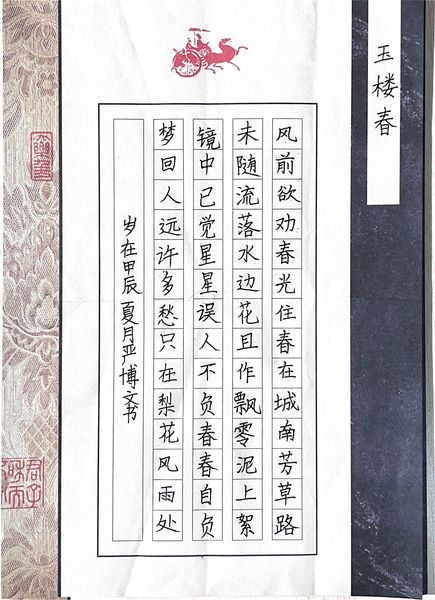 玉楼春
风前欲劝春光住春在城南芳草路
未随流落水边花且作飘零泥上絮
镜中已觉星星误人不负春春自负
梦回人远许多愁只在梨花风雨处
岁在甲辰夏月严博文书